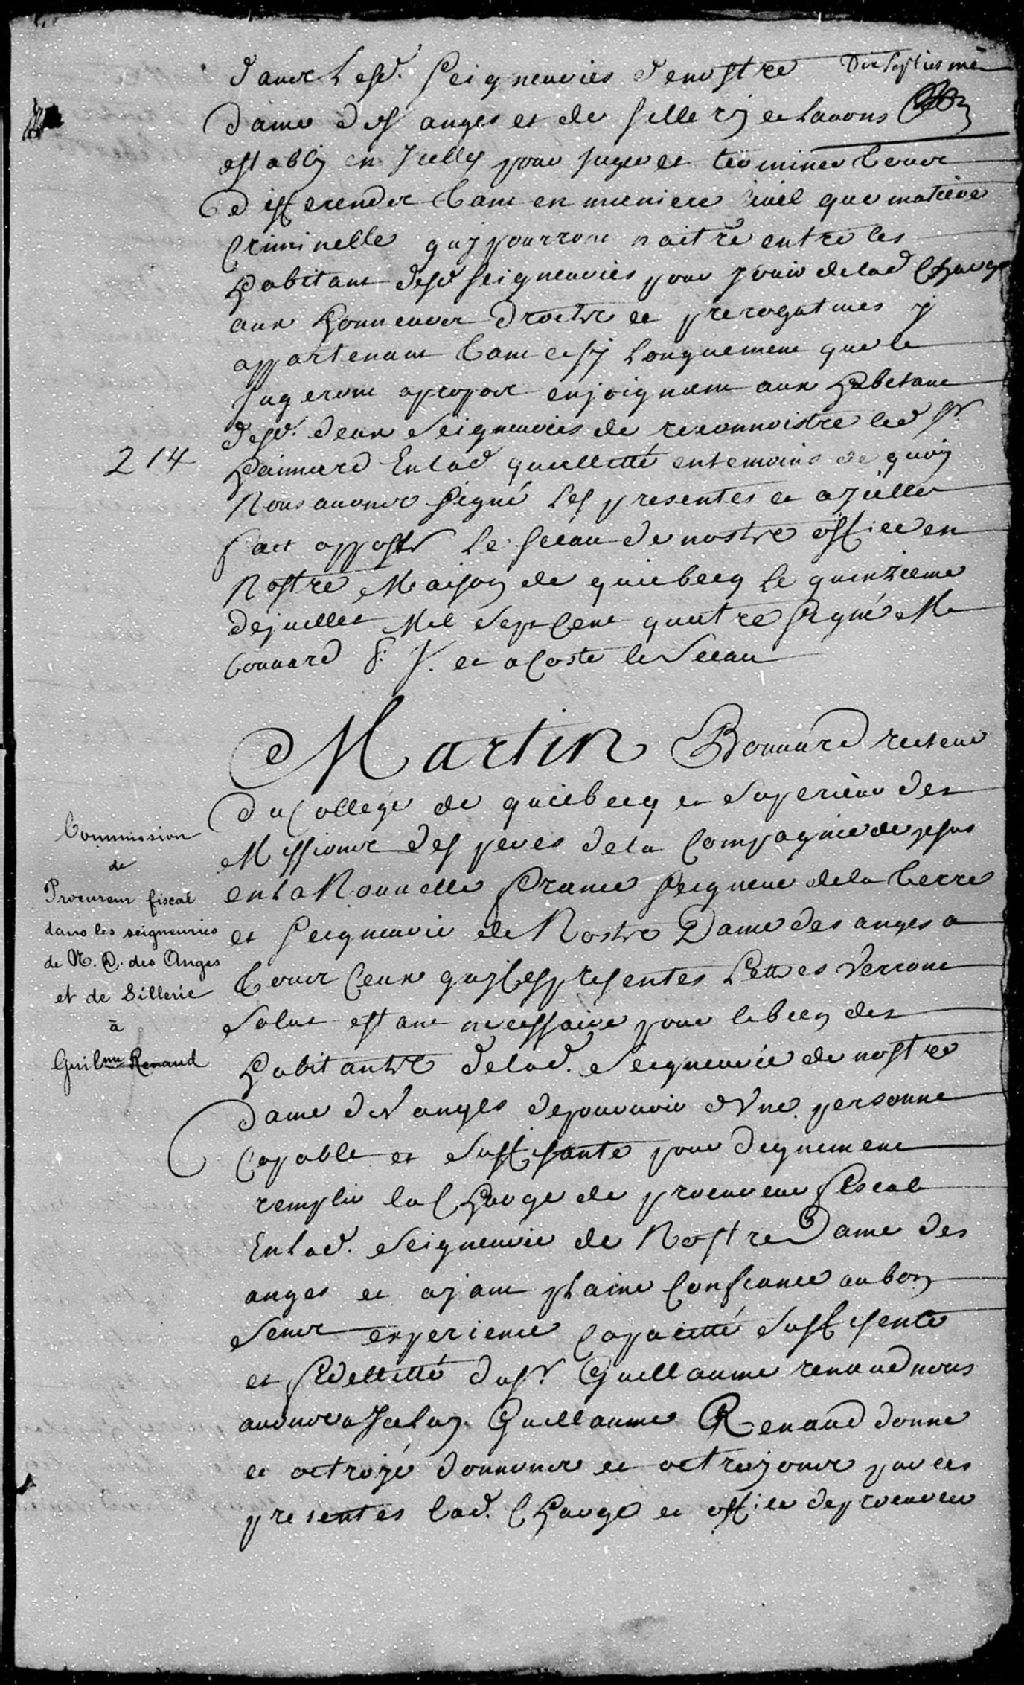 dans Lesd. Seigneuries denostre Dix Septieme
dame des anges et de Sillery et Lavons
estably en Jcelles pour juger et terminer tous
differender tant en maniere civil que matiere
Criminelle quy pourront naitre entre les
habitans desd Seigneuries pour Jouir delad Charge
aux honneurs droits et prerogatives y
appartenant tant et sy Longuement que le
Jugerons apropos enjoignant aux habitans
desd. deux Seigneuries de reconnoistre led Sr
214
haimard Enlad quallitté entemoins de quoy
Nous avons Signé Les presentes et a Jcelles
fait apposer Le Sceau de nostre office en
Nostre Maison de quiebecq Le quinzieme
dejuillet Mil Sept Cent quatre Signé M
bouvard S. J. et a Costé le Sceau
Martin Bouvard recteur
du College de quiebecq et Superieur des
Missions des peres dela Compagnie de jesus
en La Nouvelle france Seigneur dela terre
et Seigneurie de Nostre Dame des anges a
tous Ceux quy Cespresentes Lettres verront
Salut estant necessaire pour le bien des
habitants delad. Seigneurie de nostre
dame des anges depouvoir dVne personne
Capable et Suffisante pour dignement
remplir la Charge de procureur fiscal
Enlad. Seigneurie de Nostre Dame des
anges et ayant plaine Confiance aubon
Sens experience Capacitté Suffisente
et fidellitté dusr. Guillaume renaud nous
avons a Jceluy Guillaume Renaud donné
et octroyé donnons et octroyons par ces
presentes lad. Charge et office deprocureur
Commission
de
Procureur fiscal
dans les seigneuries
de N. D. des Anges
et de Sillerie
à
Guilme Renaud